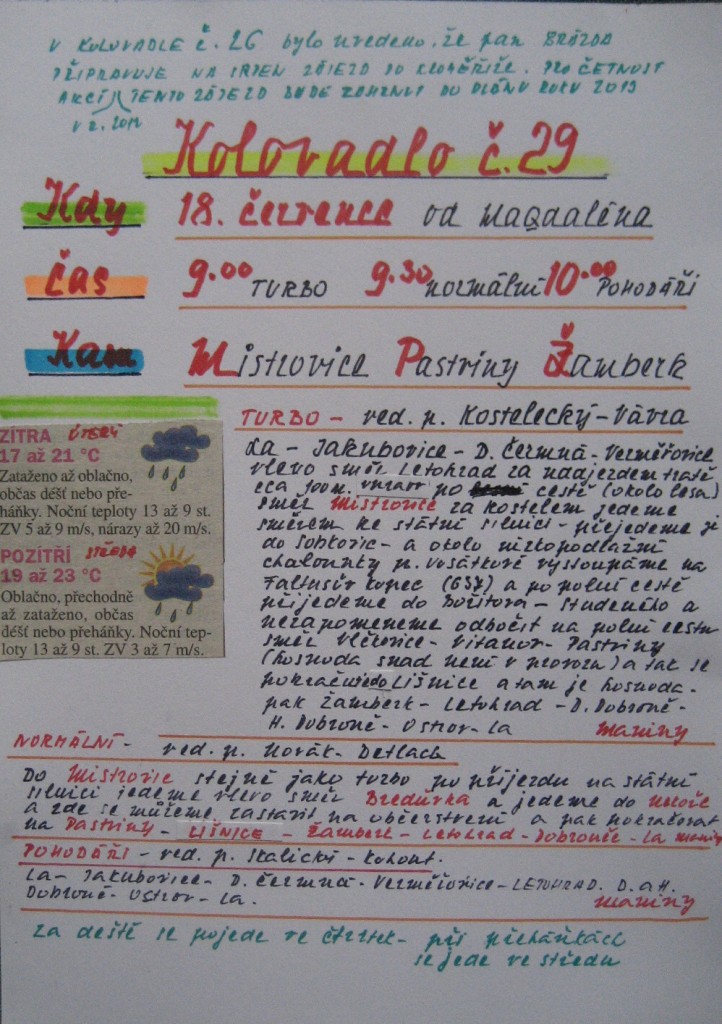 V KOLOVADLE č. 26 bylo uvedeno, že pan BRÓZDA
PŘIPRAVUJE NA SRPEN ZÁJEZD DO KROMĚŘÍŽE. PRO ČETNOST
AKCÍ TENTO ZÁJEZD BUDE ZAHRNUT DO PLÁNU ROKU 2013
V r. 2012
Kolovadlo č. 29
Kdy 18. července od Magdaléna
Čas 9.00 TURBO 9.30 normální 10.00 POHODÁŘI
Kam Mistrovice Pastviny Žamberk
ZÍTRA ÚTERÝ
17 až 21 °C
Zataženo až oblačno,
občas déšť nebo pře-
háňky. Noční teploty 13 až 9 st.
ZV 5 až 9 m/s, nárazy až 20 m/s.
POZÍTŘÍ STŘEDA
19 až 23 °C
Oblačno, přechodně
až zataženo, občas
déšť nebo přeháňky. Noční tep-
loty 13 až 9 st. ZV 3 až 7 m/s.
TURBO - ved. p. Kostelecký - Vávra
La - Jakubovice - D. Čermná - Verměřovice
vlevo směr Letohrad za nadjezdem tratě
cca 300m. vpravo po cestě (okolo lesa)
směr Mistrovice za kostelem jedeme
směrem ke státní silnici - přejedeme ji
do Sobkovic - a okolo nízkopodlažní
chaloupky p. Vošátkové vystoupáme na
Faltusův kopec (637) a po polní cestě
přijedeme do Bořitova - Studeného a
nezapomeneme odbočit na polní cestu
směr Vlčkovice - Vitanov - Pastviny
(hospoda snad není v provozu) a tak se
pokračuje do Lišnice a tam je hospoda -
pak Žamberk - Letohrad - D. Dobrouč -
H. Dobrouč - Ostrov - La maniny
NORMÁLNÍ - ved. p. Novák - Detlach
Do Mistrovic stejně jako turbo po příjezdu na státní
silnici jedeme vlevo směr Bredůvka a jedeme do Nekoře
a zde se můžeme zastavit na občerstvení a pak pokračovat
na Pastviny - LIŠNICE - Žamberk - Letohrad - Dobrouče - La maniny
POHODÁŘI - ved. p. Skalický - Kohout.
La - Jakubovice - D. Čermná - Verměřovice - LETOHRAD. D. a H.
Dobrouč - Ostrov - La. maniny
Za deště se pojede ve čtvrtek - při přeháňkách
se jede ve středu